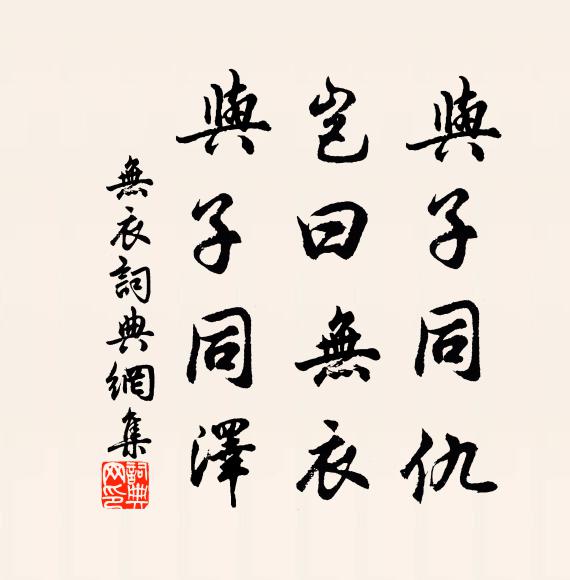 與子同仇
豈曰無衣
與子同澤
無衣詞典網集
詞典网印